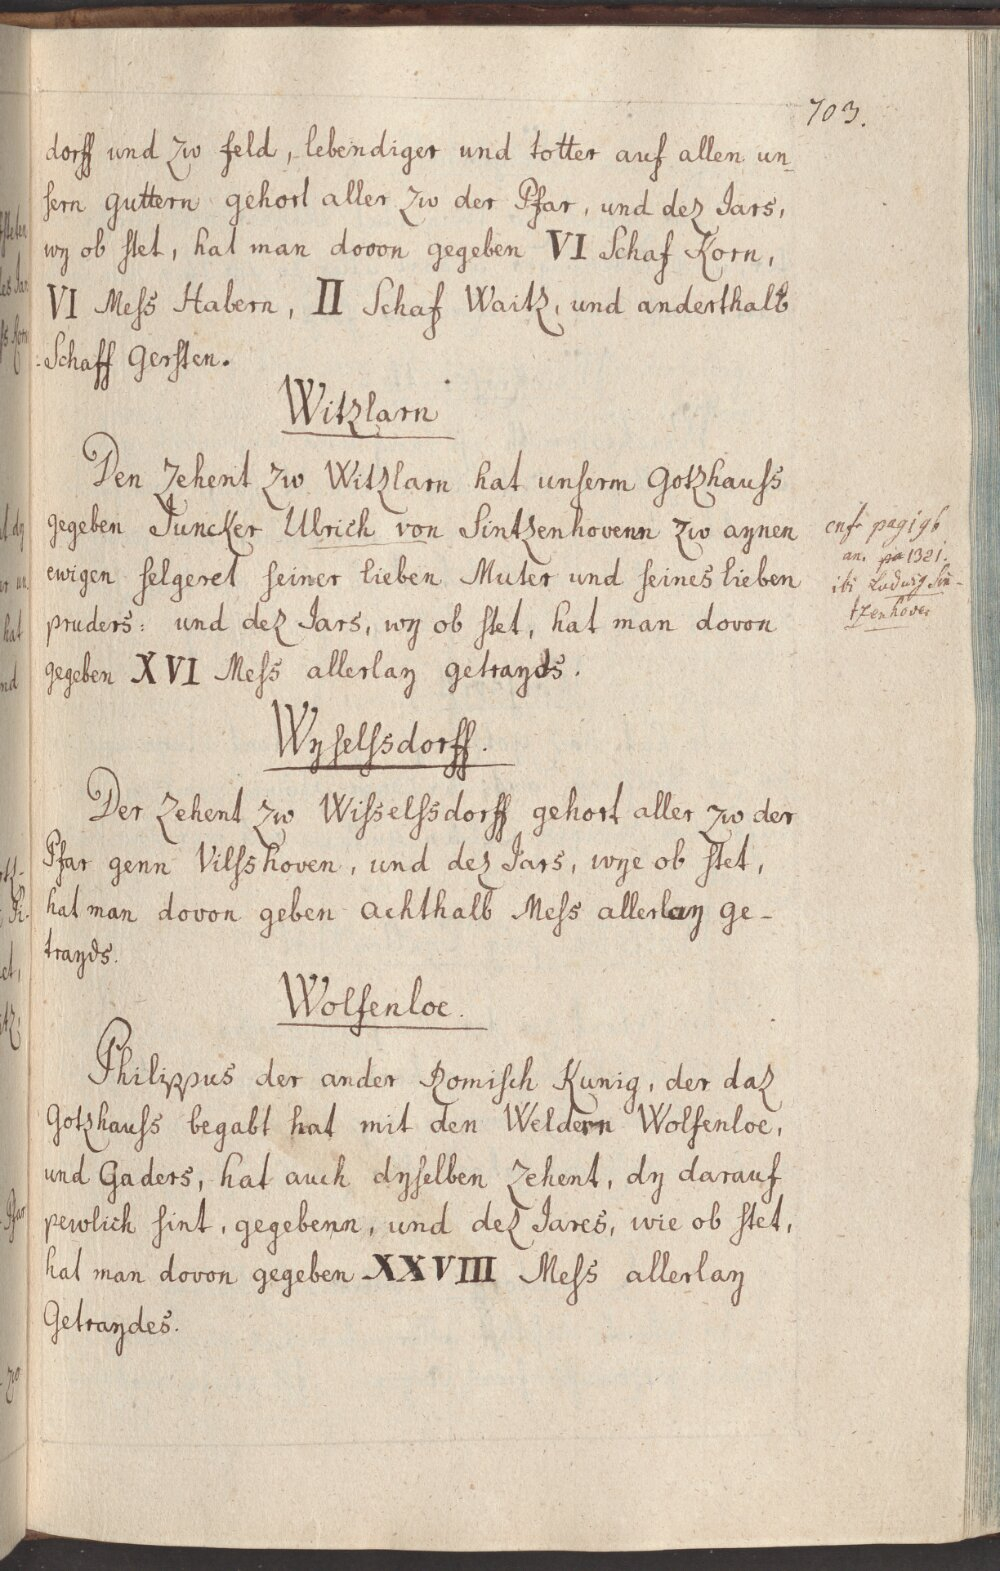 703.
dorff und zw feld, lebendiger und totter auf allen un-
sern guttern gehort aller zw der Pfar, und dez Jars,
wy ob stet, hat man dovon gegeben VI Schaf Korn,
VI Mess Habern, II Schaf Waitz, und anderthalb
Schaff Gersten.
Witzlarn
Den Zehent zw Witzlarn hat unserm Gotzhauss
gegeben Juncker Ulrich von Sintzenhovenn zw aynen
ewigen selgeret seiner lieben Muter und seines lieben
pruders: und dez Jars, wy ob stet, hat man dovon
gegeben XVI Mess allerlay getrayds.
an. 1321.
ibi Ludwig Sin-
tzenhover
Wyselssdorff.
Der Zehent zw Wisselssdorff gehort aller zw der
Pfar genn Vilsshoven, und dez Jars, wye ob stet,
hat man dovon geben achthalb Mess allerlay ge-
trayds.
Wolfenloe.
Philippus der ander Romisch Kunig, der daz
Gotzhauss begabt hat mit den Weldern Wolfenloe,
und Gaders, hat auch dyselben Zehent, dy darauf
pewlich sint, gegebenn, und dez Jares, wie ob stet,
hat man dovon gegeben XXVIII Mess allerlay
Getraydes.